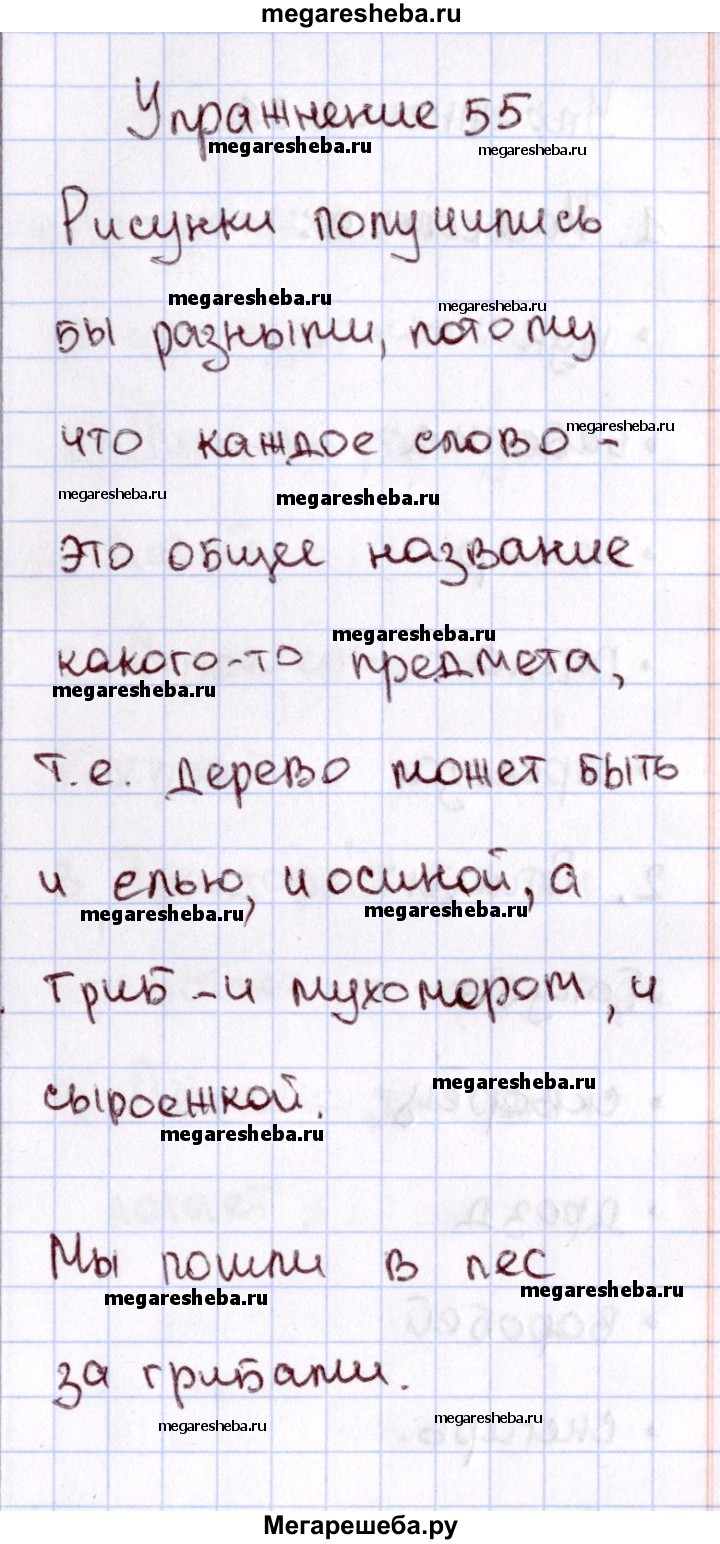 megaresheba.ru
Упражнение 55
megaresheba.ru megaresheba.ru
Рисунки получились
megaresheba.ru megaresheba.ru
бы разными, потому
что каждое слово -
megaresheba.ru
megaresheba.ru megaresheba.ru
это общее название
megaresheba.ru
какого-то предмета,
megaresheba.ru
т.е. дерево может быть
и елью, и осиной, а
megaresheba.ru megaresheba.ru
гриб - и мухомором, и
сыроежкой.
megaresheba.ru
megaresheba.ru
Мы пошли в лес
megaresheba.ru megaresheba.ru
за грибами.
megaresheba.ru megaresheba.ru
Мегарешеба.ру